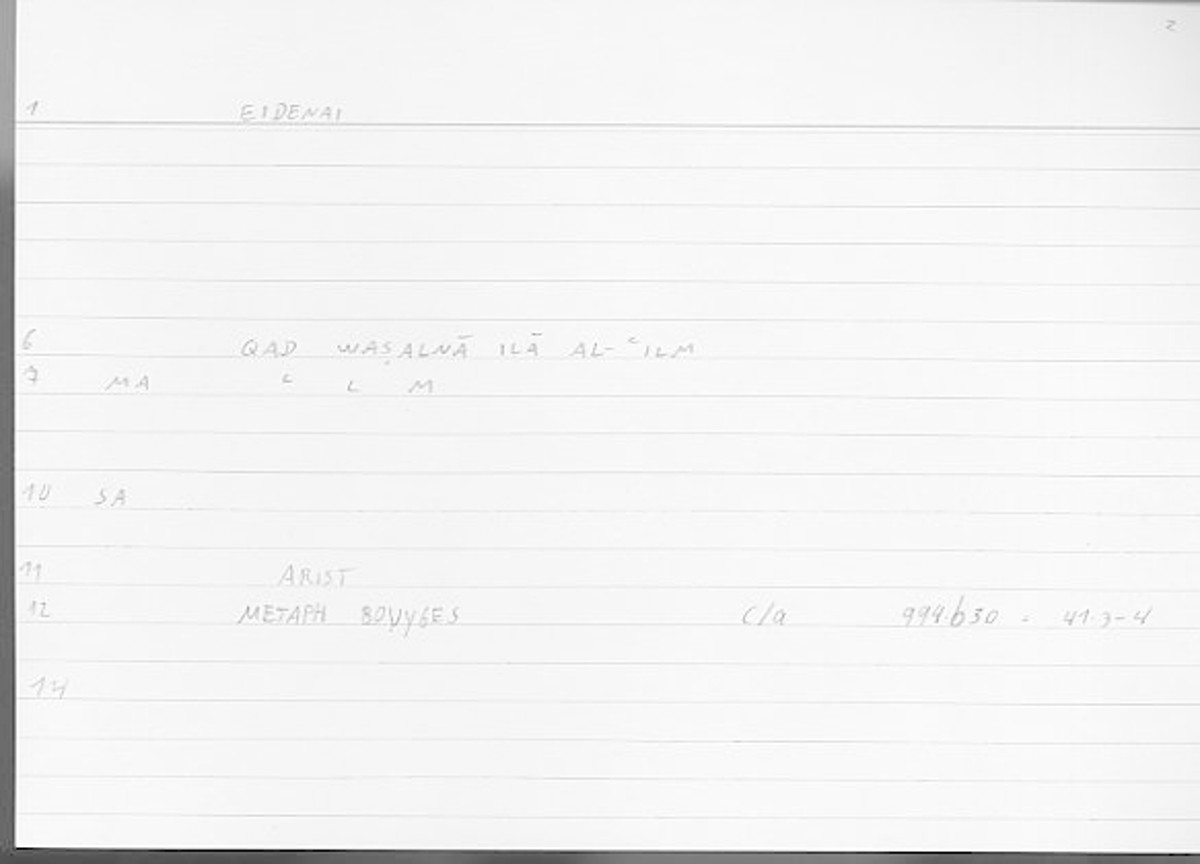 2
1 EIDENAI
6 QAD WAṢALNĀ ILĀ AL-ʿILM
7 MA L L M
10 SA
11 ARIST
12 METAPH BOUYGES C/a 994b30 41.3-4
14